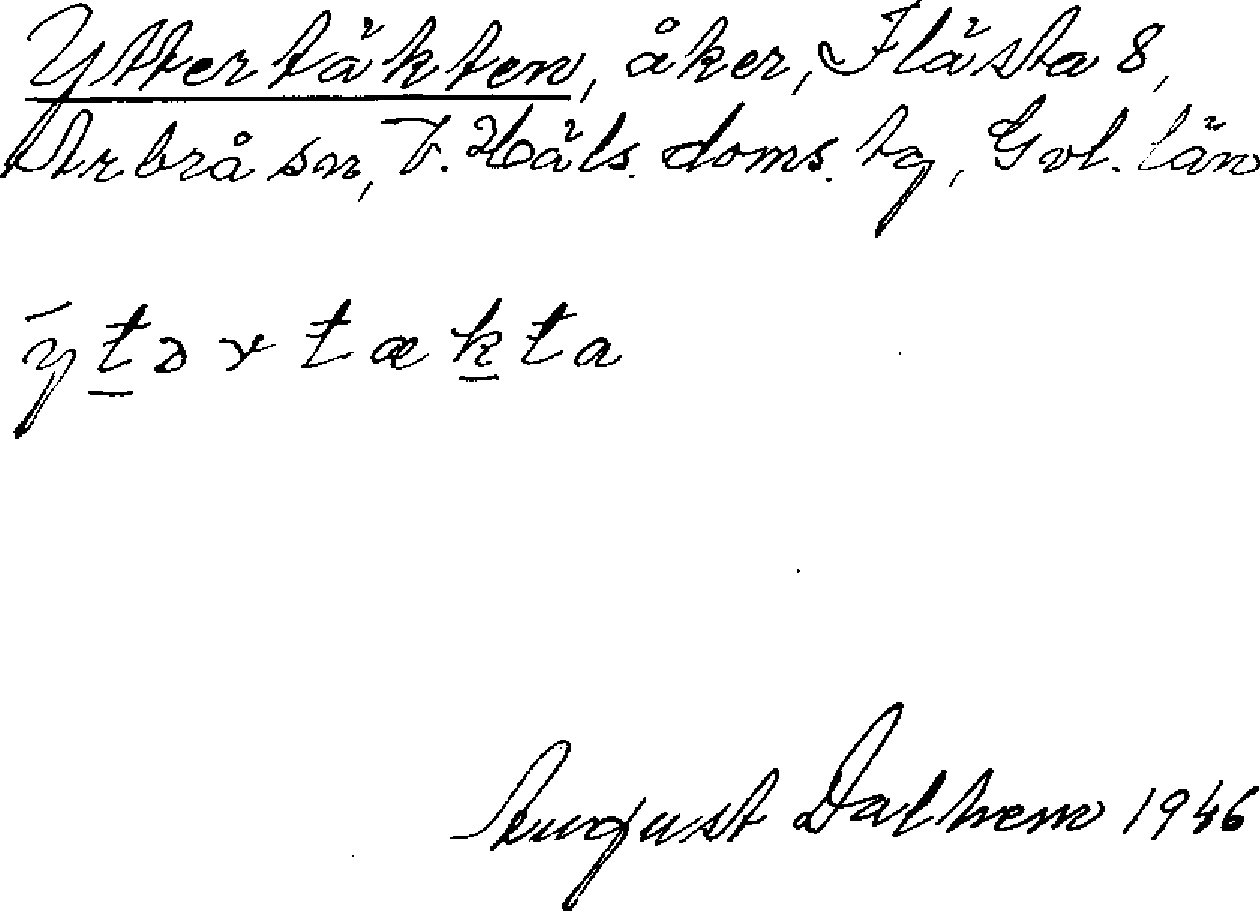 Yttertäkten, åker, Flästa 8,
Arbrå sn, V. Häls. doms. tg, Gvl. län
ýt̲ər tæk̲ta
August Dalhem 1946